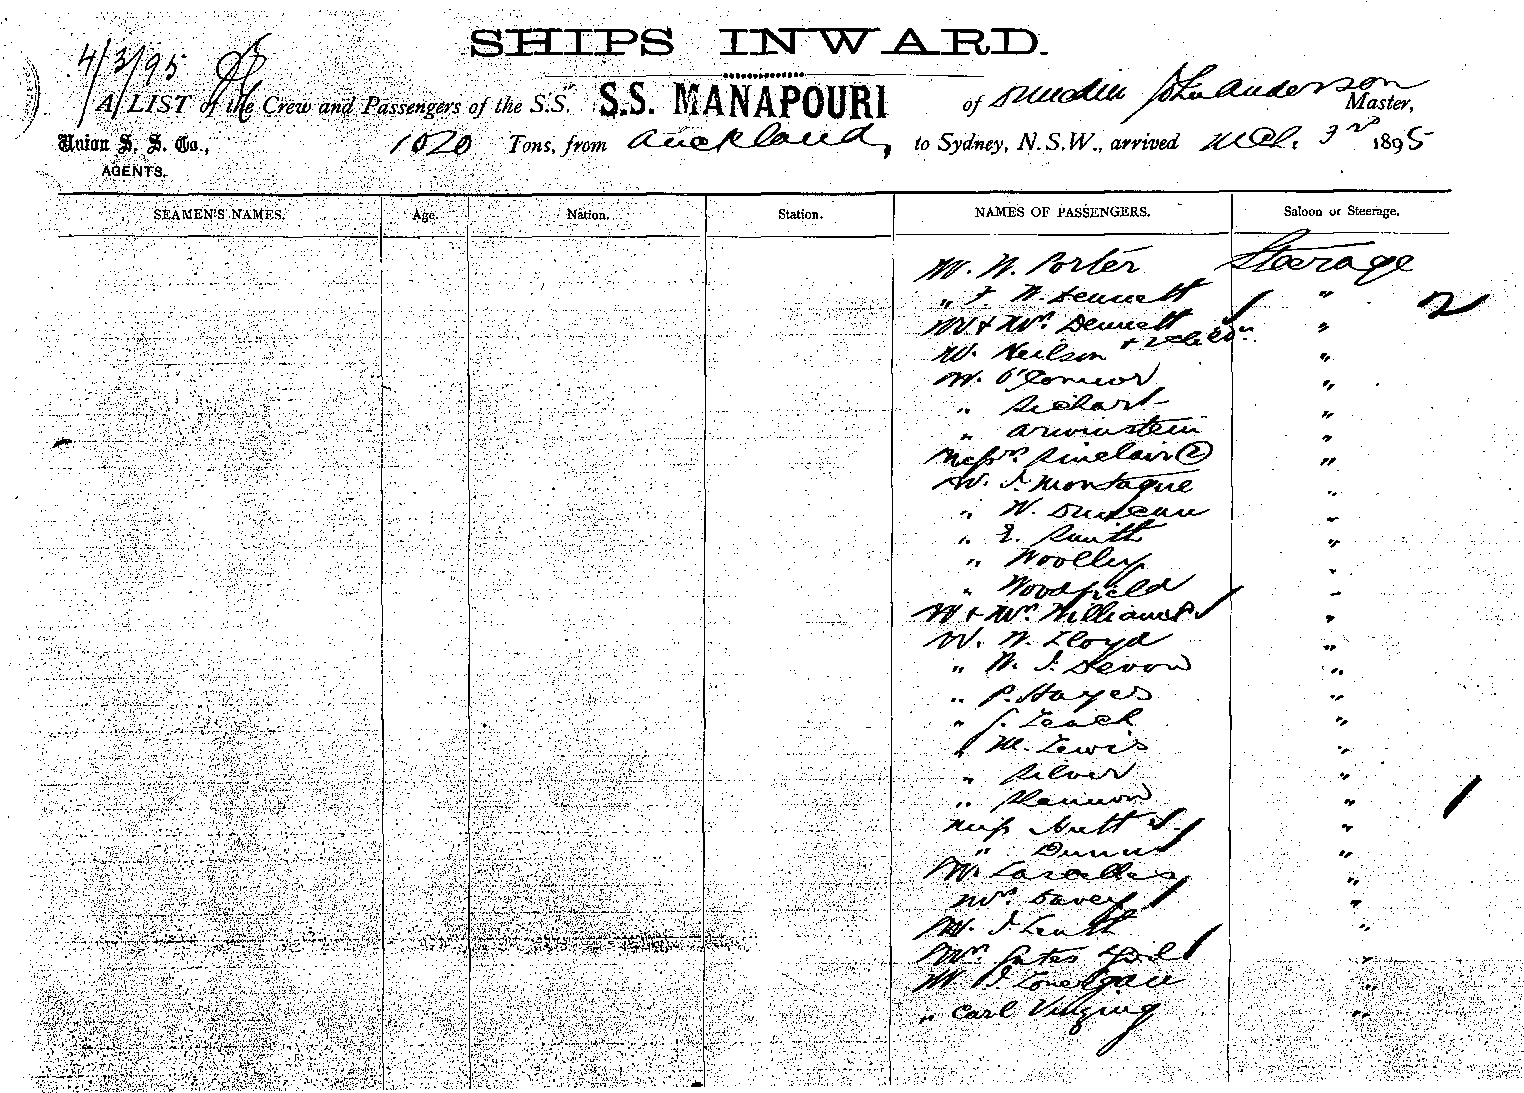 SHIPS INWARD.
4/3/95
A LIST of the Crew and Passengers of the S.S. S.S. MANAPOURI of Dunedin John Anderson Master,
Union S. S. Co., 1020 Tons, from Auckland, to Sydney, N.S.W., arrived Mch. 3rd 1895
AGENTS.
SEAMEN'S NAMES. Age. Nation. Station. NAMES OF PASSENGERS. Saloon or Steerage.
Mr. W. Porter Steerage
" F. W. Dennett " 2
Mr & Mrs. Dennett "
+ 2 child'n
Mr. Neilson "
Mr. O'Connor "
" "
" "
Messrs. Sinclair (2) "
Mr. J. Montague "
" W. Duncan "
" E. Smith "
" Woolley "
" Woodfield "
Mr & Mrs. Williams "
Mr. W. Lloyd "
" W. J. Devon "
" P. Hayes "
" J. Leach "
" M. Lewis "
" Silver "
" Shannon " 1
Miss "
" Dunn "
Mr. Lascelles "
Mrs. Davey "
Mr. J. "
Mrs. Gates "
Mr. J. Lonergan "
" Carl "